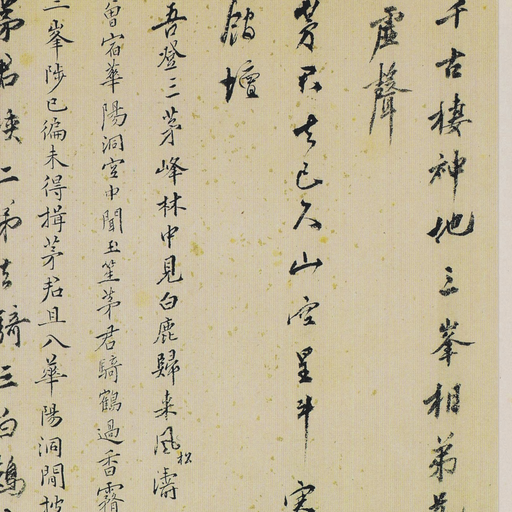 千古棲神地三峯相弟兄
虛聲
茅君去已久山空星斗寒
壇
吾登三茅峰林中見白鹿歸来風松濤
曾宿華陽洞空中聞玉笙茅君騎鶴過香霧
二峯陟已徧未得揖茅君且入華陽洞閒披
茅君乘二弟去騎三白鶴